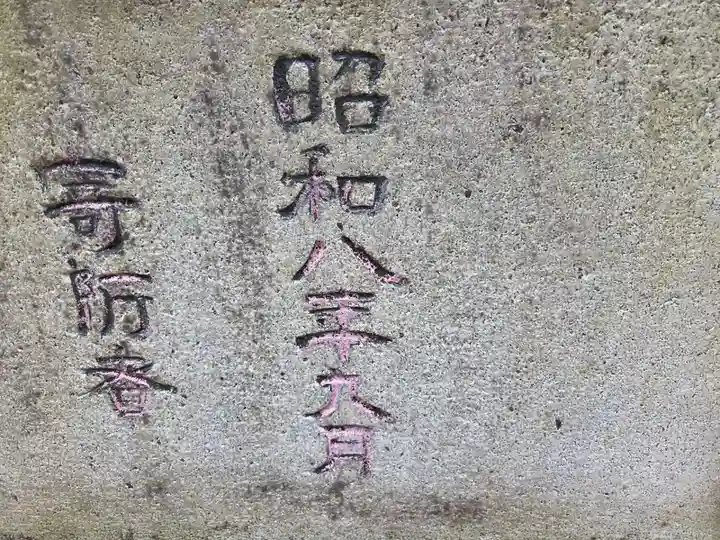 昭和八年九月
寄附者